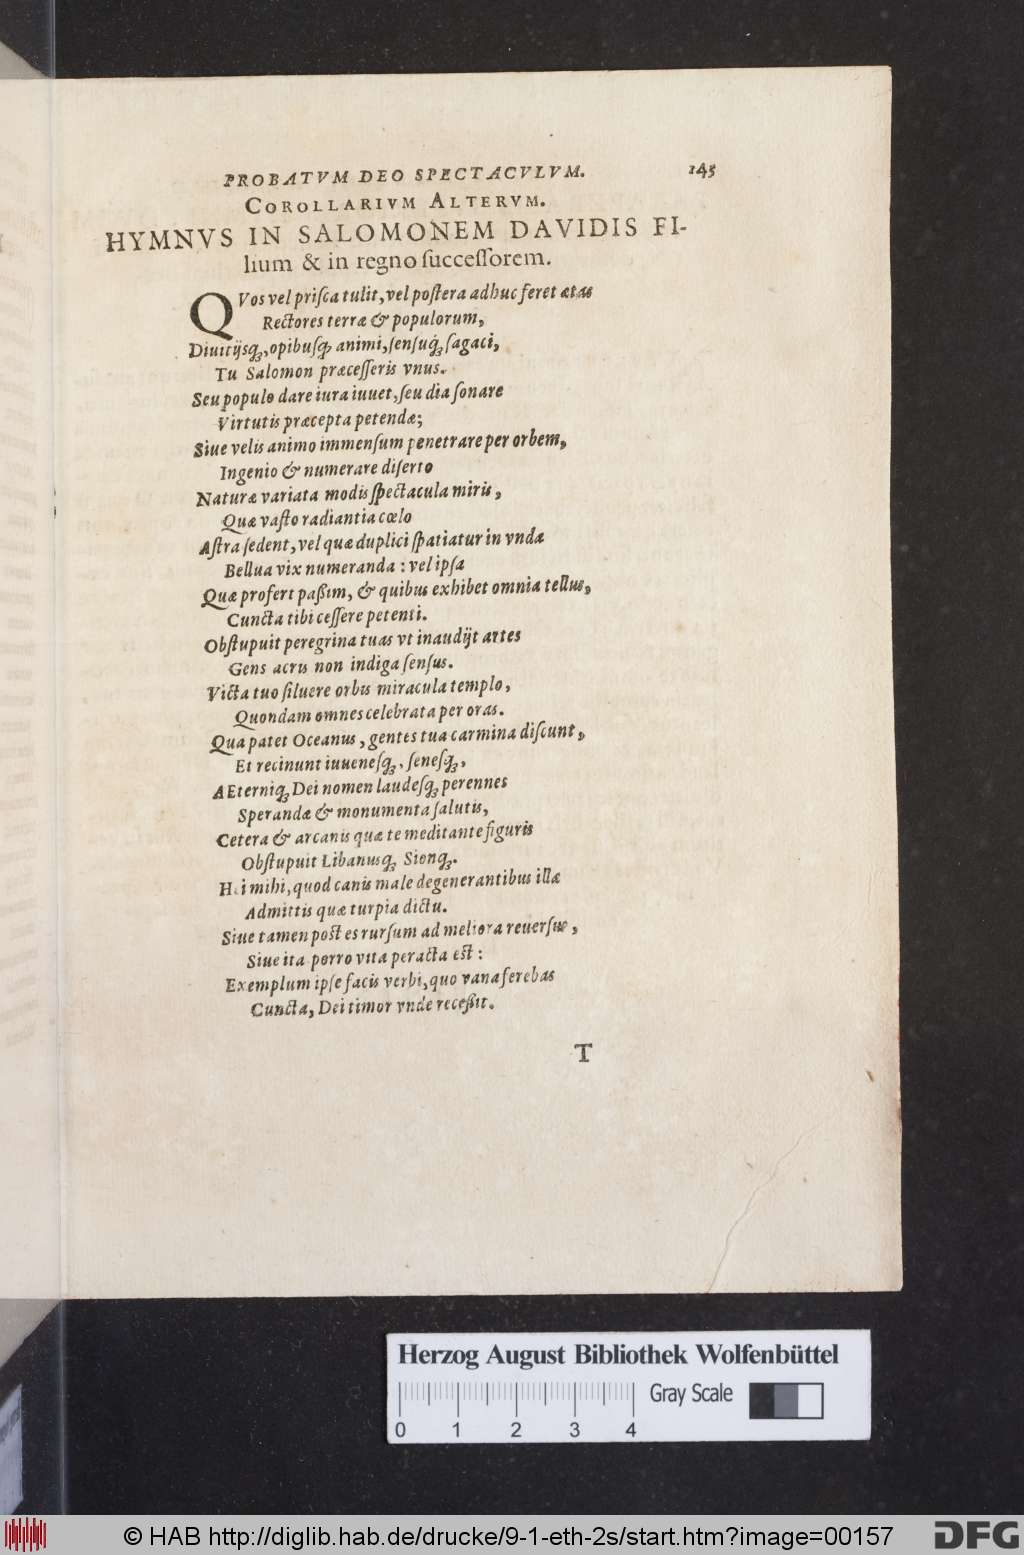 PROBATVM DEO SPECTACVLVM. 145
COROLLARIVM ALTERVM.
HYMNVS IN SALOMONEM DAVIDIS FI-
lium & in regno ſucceſſorem.
QVos vel priſca tulit, vel poſtera adhuc feret ætas
Rectores terræ & populorum,
Diuitijsq́ꝫ, opibuſqꝫ animi, ſenſuq́ꝫ ſagaci,
Tu Salomon præceſſeris vnus.
Seu populo dare iura iuuet, ſeu dia ſonare
Virtutis præcepta petendæ;
Siue velis animo immenſum penetrare per orbem,
Ingenio & numerare diſerto
Naturæ variata modis ſpectacula miris,
Quæ vaſto radiantia cœlo
Aſtra ſedent, vel quæ duplici ſpatiatur in vnda
Bellua vix numeranda: vel ipſa
Quæ profert paßim, & quibus exhibet omnia tellus,
Cuncta tibi ceſſere petenti.
Obſtupuit peregrina tuas vt inaudijt artes
Gens acris non indiga ſenſus.
Victa tuo ſiluere orbis miracula templo,
Quondam omnes celebrata per oras.
Qua patet Oceanus, gentes tua carmina diſcunt,
Et recinunt iuueneſqꝫ, ſeneſqꝫ,
AEterniqꝫ Dei nomen laudeſqꝫ perennes
Sperandæ & monumenta ſalutis,
Cetera & arcanis quæ te meditante figuris
Obſtupuit Libanusqꝫ Sionqꝫ.
Hei mihi, quod canis male degenerantibus illæ
Admittis quæ turpia dictu.
Siue tamen post es rurſum ad meliora reuerſus,
Siue ita porro vita peracta est:
Exemplum ipſe facis verbi, quo vana ferebas
Cuncta, Dei timor vnde receßit.
T
Herzog August Bibliothek Wolfenbüttel
Gray Scale
0 1 2 3 4
© HAB http://diglib.hab.de/drucke/9-1-eth-2s/start.htm?image=00157
DFG